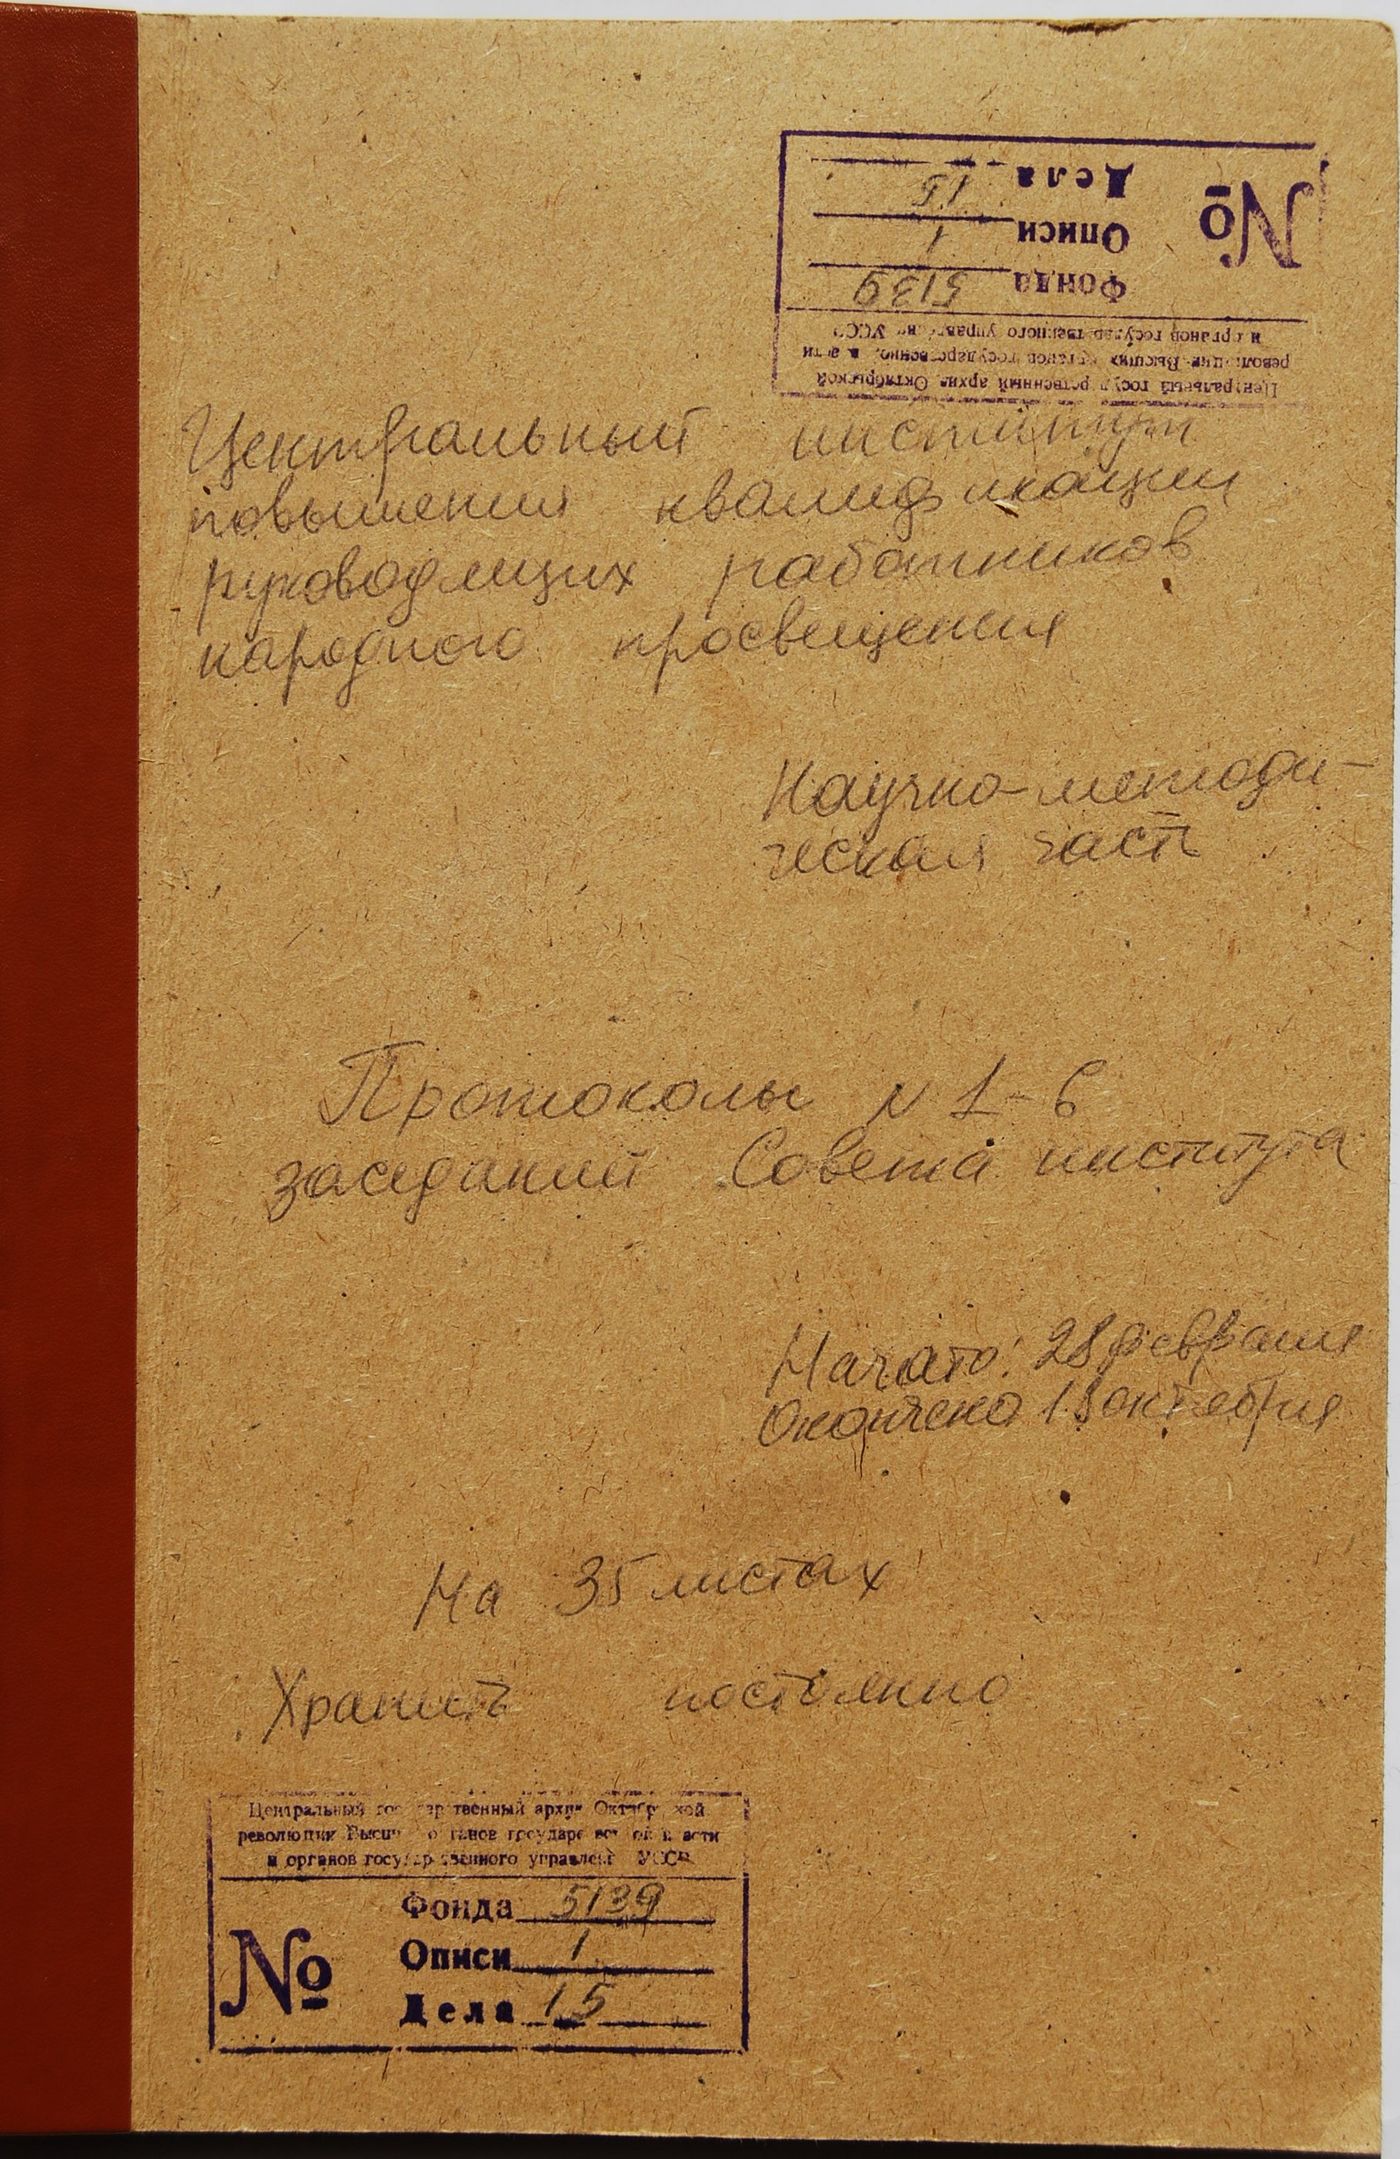 Центральный государственный архив Октябрьской
революции Высших органов государственной власти
и органов государственного управления УССР
№
Фонда 5139
Описи 1
Дела 15
Центральный институт
повышения квалификации
руководящих работников
народного просвещения
Научно-методи-
ческая часть
Протоколы N 1-6
заседаний Совета института
Начато: 28 февраля
Окончено октября
На 35 листах
Хранить постоянно
Центральный государственный архив Октябрьской
революции Высших органов государственной власти
и органов государственного управления УССР
№
Фонда 5139
Описи 1
Дела 15